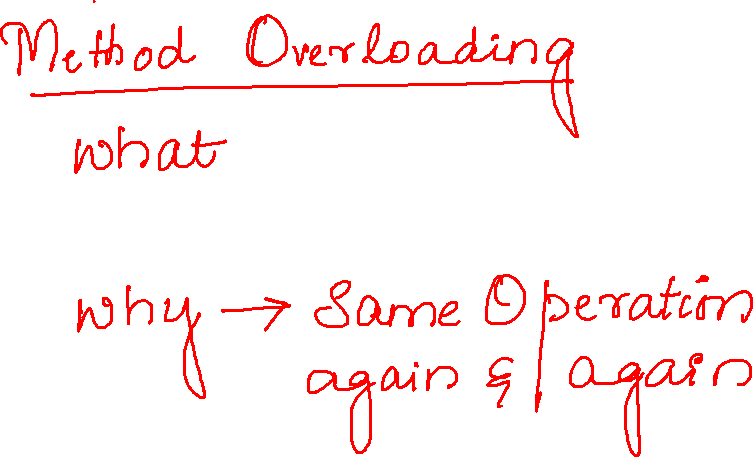 Method Overloading
what
why → Same Operation
again & again